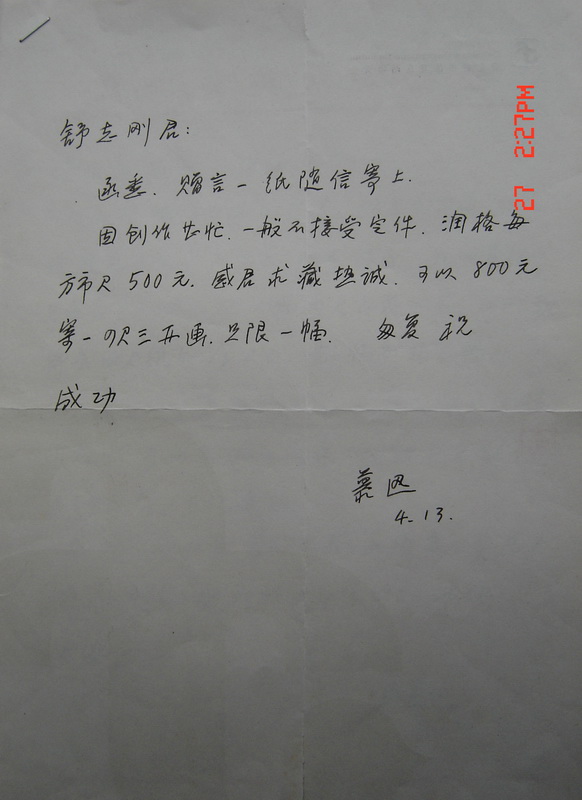 舒志刚君：
函悉．赠言一纸随信寄上．
因创作甚忙．一般不接受定件．润格每
方市尺500元．感君求藏热诚．可以800元
寄一四尺三开画．只限一幅．　匆复　祝
成功
慕
4.13.
27 2:27PM